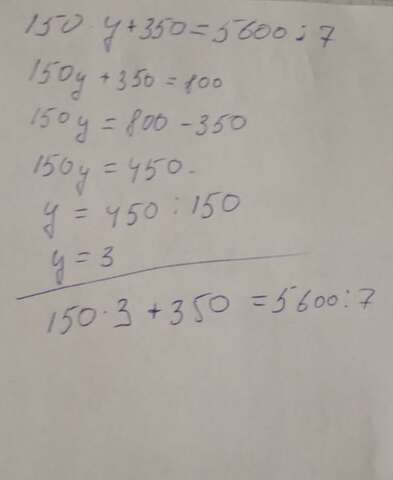 150 · y + 350 = 5600 : 7
150y + 350 = 800
150y = 800 - 350
150y = 450.
y = 450 : 150
y = 3
150 · 3 + 350 = 5600 : 7